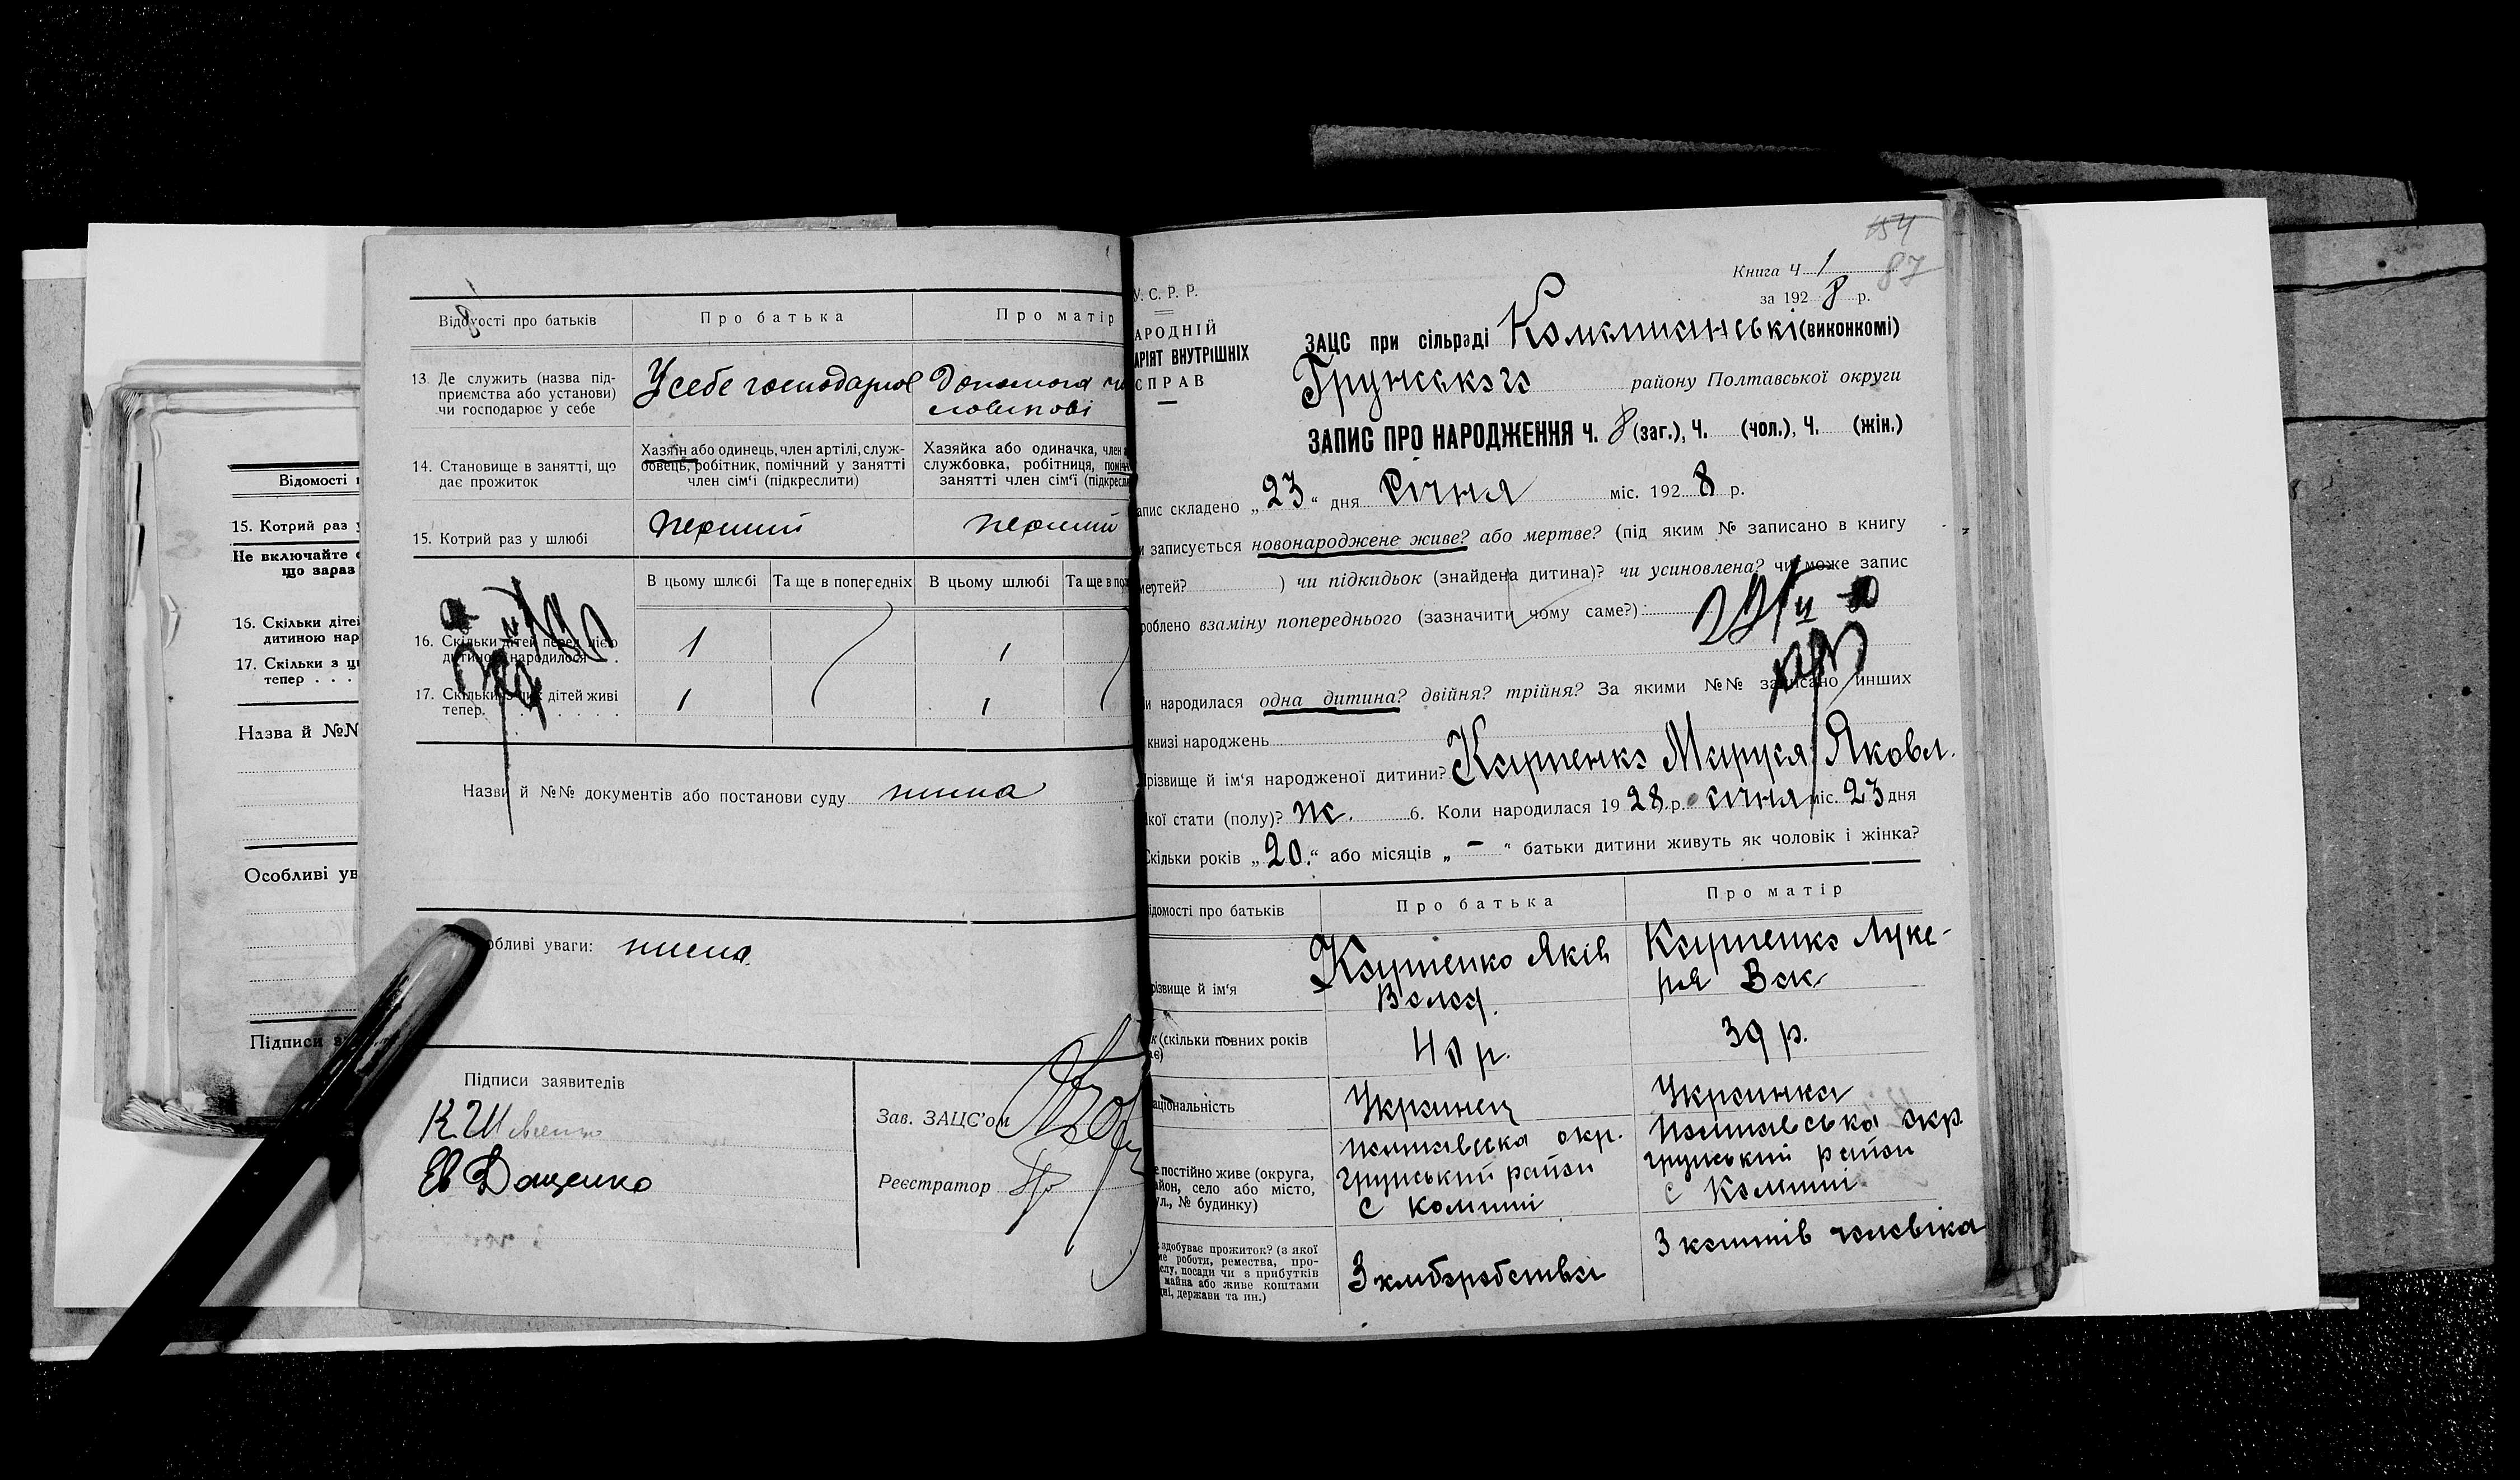 Відомості про батьків
Про батька
Про матір
13. Де служить (назва під-
приємства або установи)
чи господарює у себе
У себе господарює
Допомога чо
ловікові
14. Становище в занятті, що
дає прожиток
Хазяїн або одинець, член артілі, служ-
бовець, робітник, помічний у занятті
член сім'ї (підкреслити)
Хазяйка або одиначка, член
службовка, робітниця, поміч
занятті член сім'ї (підкресл
15. Котрий раз у шлюбі
перший
перший
В цьому шлюбі
Та ще в попередніх
В цьому шлюбі
Та ще в по
16. Скільки дітей перед цією
дитиною народилося
1
1
17. Скільки з них дітей живі
тепер
1
1
Назви й №№ документів або постанови суду нема
обливі уваги: нема
Підписи заявителів
К Шевченко
Ев Дащенко
Зав. ЗАЦС'ом
Реєстратор
Відомості
15. Котрий раз у
Не включайте
що зараз
16. Скільки діте
дитиною нар
17. Скільки з ц
тепер
Назва й №№
Особливі ув
Підписи з
154
87
Книга Ч 1
за 1928 р.
У. С. Р. Р.
АРОДНІЙ
АРІЯТ ВНУТРІШНІХ
СПРАВ
ЗАЦС при сільраді Комишанські (виконкомі)
Грунського району Полтавської округи
ЗАПИС ПРО НАРОДЖЕННЯ Ч. 8 (заг.), Ч. (чол.), Ч. (жін.)
апис складено „23“ дня Січня міс. 1928 р.
и записується новонароджене живе? або мертве? (під яким № записано в книгу
мертей? ) чи підкидьок (знайдена дитина)? чи усиновлена? чи може запис
роблено взаміну попереднього (зазначити чому саме?)
и народилася одна дитина? двійня? трійня? За якими №№ записано инших
книзі народжень
різвище й ім'я народженої дитини? Куценко Маруся Яковл.
кої стати (полу)? Ж. 6. Коли народилася 1928 р. січня міс. 23 дня
Скільки років „20.“ або місяців „ - “ батьки дитини живуть як чоловік і жінка?
ідомості про батьків
Про батька
Про матір
різвище й ім'я
Куценко Яків
Волод.
Куценко Луке-
ря Вак
к (скільки повних років
ає)
40 р.
39 р.
аціональність
Українец
Українка
е постійно живе (округа,
айон, село або місто,
ул., № будинку)
Полтавська окр.
Грунський район
с Комиші
Полтавська окр
Грунський район
с Комиші
здобуває прожиток? (з якої
ме роботи, ремества, про-
слу, посади чи з прибутків
майна або живе коштами
ні, держави та ин.)
З хліборобства
З коштів чоловіка